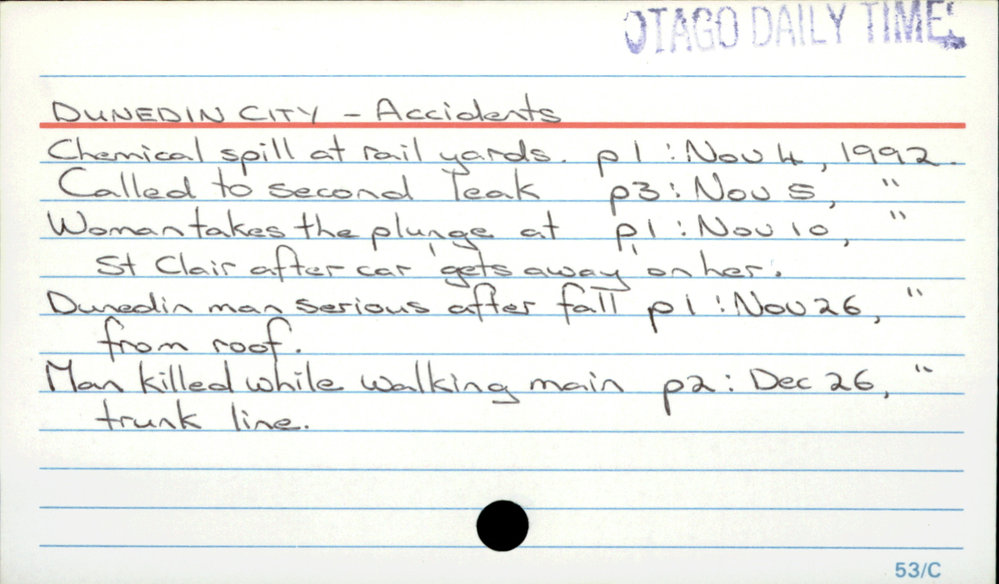 OTAGO DAILY TIMES
DUNEDIN CITY - Accidents
Chemical spill at rail yards. p1 : Nov 4, 1992.
Called to second leak p3 : Nov 5, "
Woman takes the plunge at p1 : Nov 10, "
St Clair after car 'gets away' on her.
Dunedin man serious after fall p1 : Nov 26, "
from roof.
Man killed while walking main p2 : Dec 26, "
trunk line.
53/C